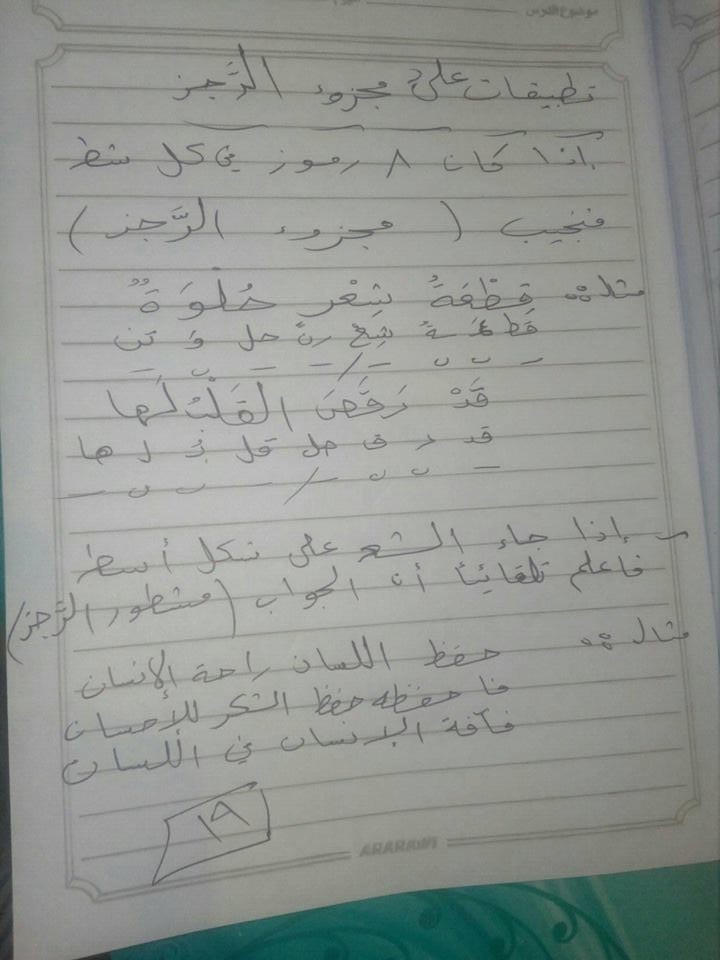 موضوع الدرس
تطبيقات على مجزوء الرَّجز
إذا كان ٨ رموز في كل شطر
فنجيب ( مجزوء الرَّجز )
مثلاً: قِطْعَةُ شِعْرٍ حُلْوَةٌ
قِط عَ ةُ شِعْ رِنْ حل وَ تن
– ں ں – / – – ں –
قَدْ رَقَصَ القَلْبُ لَها
قد ر ق صل قل بُ لَ ها
– ں ں – / – ں ں –
– إذا جاء الشعر على شكل أسطر
فاعلم تلقائياً أن الجواب (مشطور الرَّجز)
مثال: حفظ اللسان راحة الإنسان
فاحفظه حفظ الشكر للإحسان
فآفة الإنسان في اللسان
١٩
ARARAWI